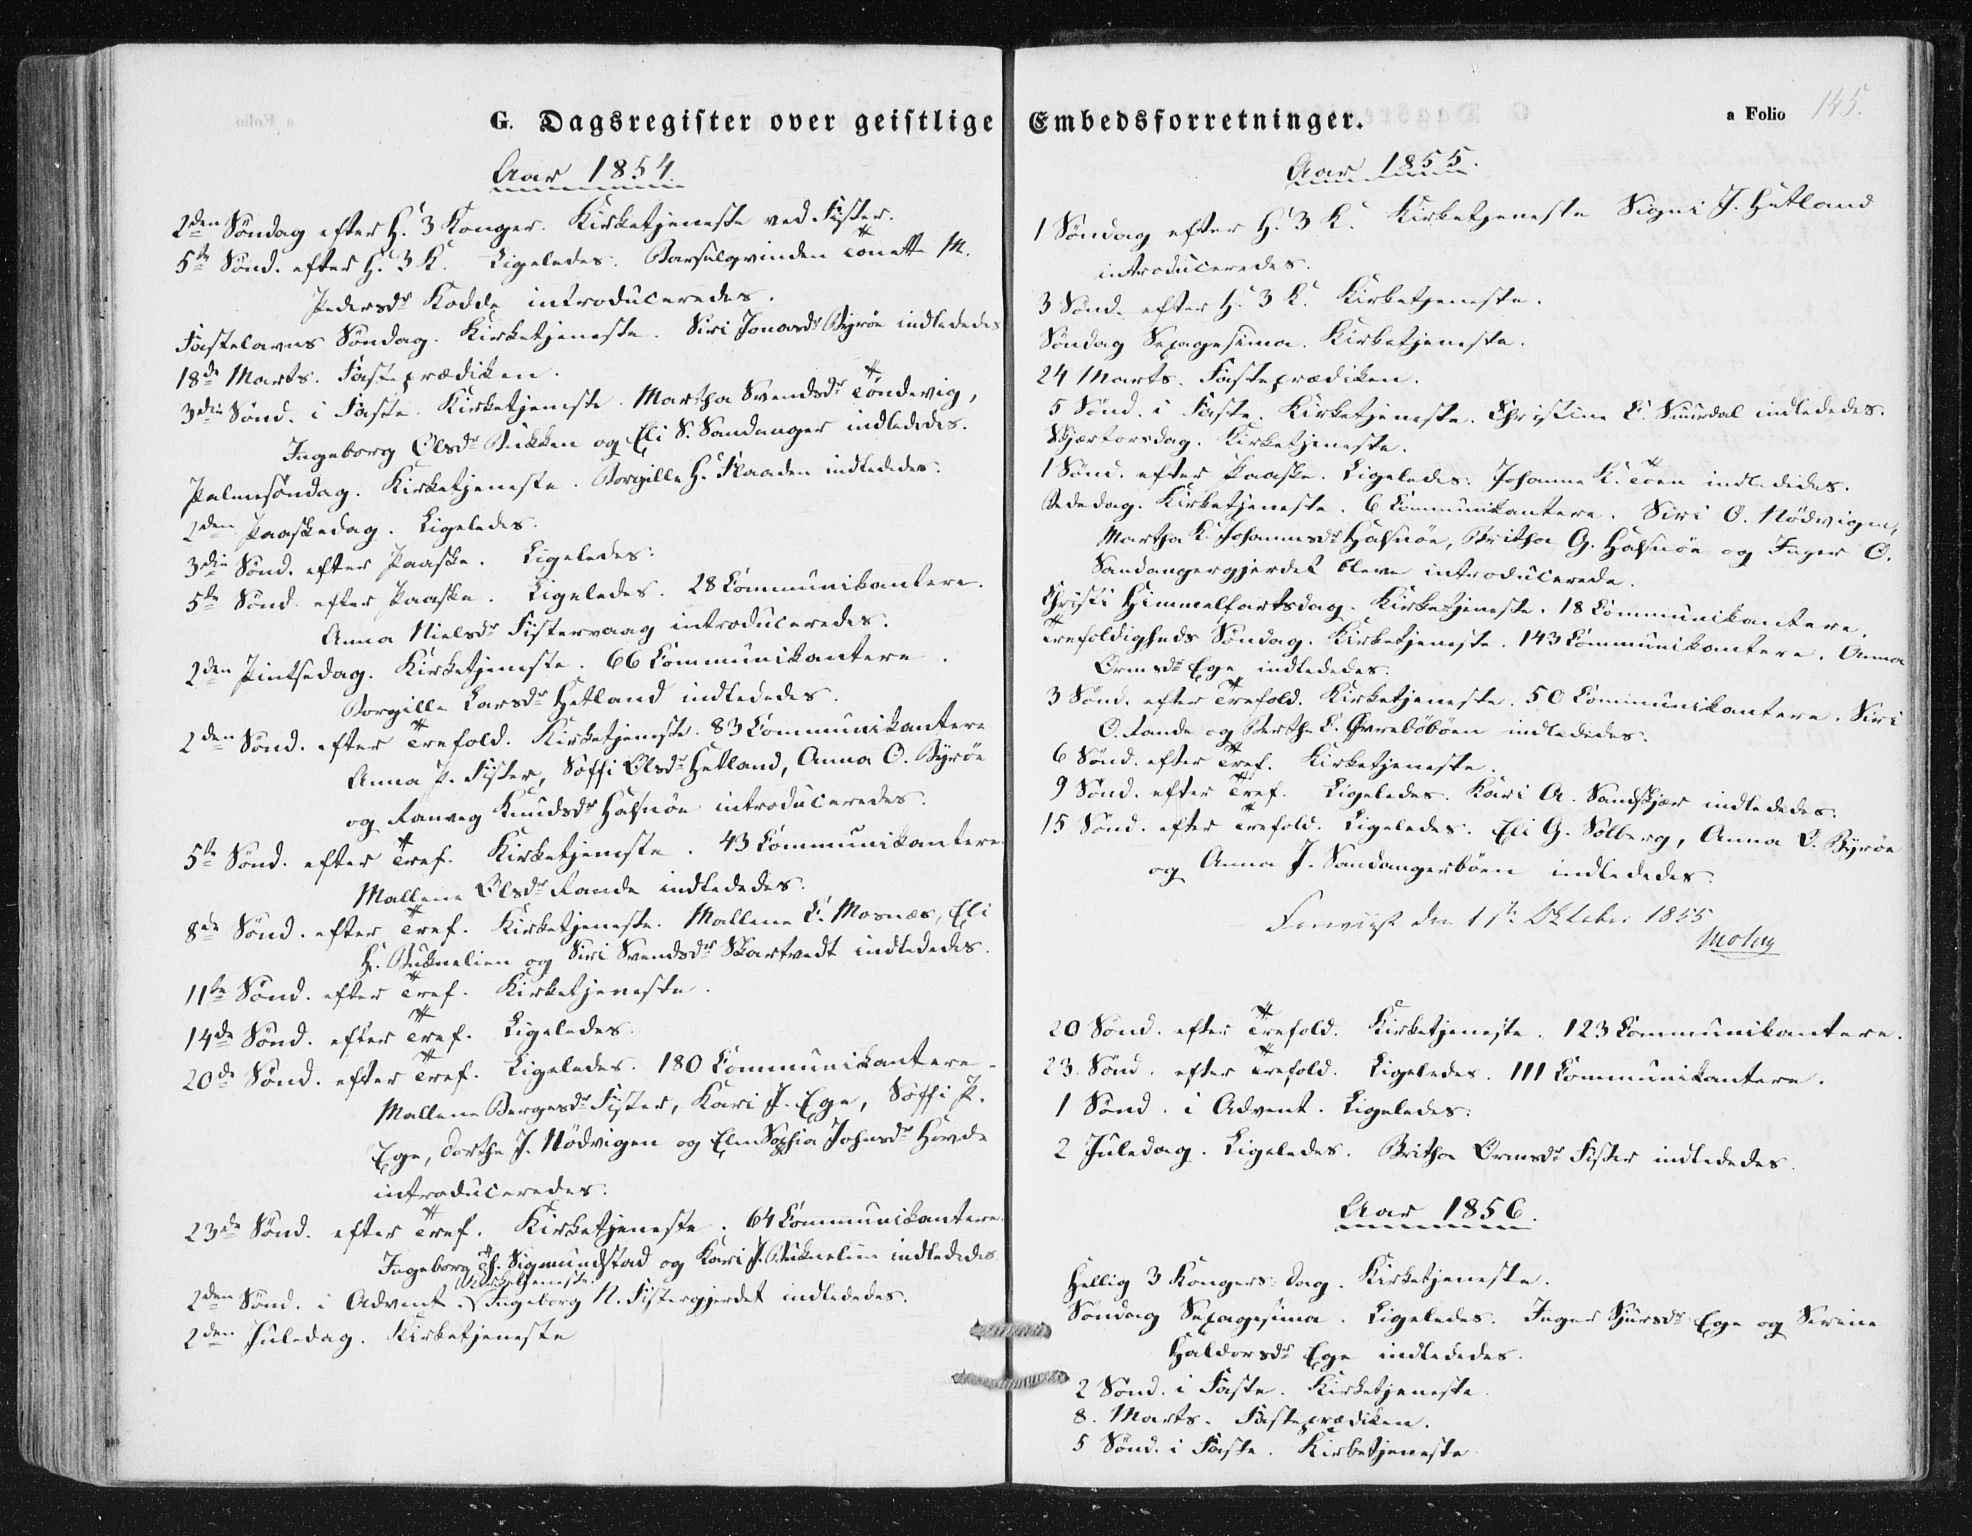 G. Dagsregister over geistlige
Aar 1854.
2den Søndag efter H. 3 Konger. Kirketjeneste ved Fister.
5te Sønd. efter H. 3 K. Ligeledes. Barselqvinden Tonette M.
Pedersdr Kodde introduceredes.
Fastelavns Søndag. Kirketjeneste. Siri Jonasdr Byrøe indlededes
18de Marts. Fasteprædiken.
3die Sønd. i Faste. Kirketjeneste. Martha Svendsdr Tøndevig,
Ingeborg Olsdr Bukken og Eli S. Sandanger indlededes.
Palmesøndag. Kirketjeneste. Borgille H. Flaaden indlededes.
2den Paaskedag. Ligeledes.
3die Sønd. efter Paaske. Ligeledes.
5te Sønd. efter Paaske. Ligeledes. 28 Communikantere.
Anna Nielsdr Fistervaag introduceredes.
2den Pintsedag. Kirketjeneste. 66 Communikantere.
Borgille Larsdr Hetland indlededes.
2den Sønd. efter Trefold. Kirketjeneste. 83 Communikantere
Anna P. Fister, Søffi Olsdr Hetland, Anna O. Byrøe
og Ranveg Knudsdr Halsnøe introduceredes.
5te Sønd. efter Tref. Kirketjeneste. 43 Communikantere.
Mallene Olsdr Rande indlededes.
8de Sønd. efter Tref. Kirketjeneste. Mallene C. Mosnæs, Eli
H. Bukkelien og Siri Svendsdr Skartvedt indlededes.
11te Sønd. efter Tref. Kirketjeneste.
14de Sønd. efter Tref. Ligeledes.
20de Sønd. efter Tref. Ligeledes. 180 Communikantere.
Mallene Bergesdr Fister, Kari J. Ege, Søffi P.
Ege, Dorthe J. Nødvigen og Elen Sophia Johnsdr Hovde
introduceredes.
23de Sønd. efter Tref. Kirketjeneste. 64 Communikantere.
Ingeborg Th. Sigmundstad og Kari J. Bukkelien indlededes
Kirketjeneste.
2den Sønd. i Advent. Ingeborg N. Fistergjerdet indlededes.
2den Juledag. Kirketjeneste
Embedsforretninger.
a Folio 145.
Aar 1855.
1 Søndag efter H. 3 K. Kirketjeneste Signi J. Hetland
introduceredes.
3 Sønd. efter H. 3 K. Kirketjeneste.
Søndag Sexagesima. Kirketjeneste.
24 Marts. Fasteprædiken.
5 Sønd. i Faste. Kirketjeneste. Christine E. indlededes.
Skjærtorsdag. Kirketjeneste.
1 Sønd. efter Paaske. Ligeledes. Johanne K. Tøen indlededes.
Bededag. Kirketjeneste. 6 Communikantere. Siri O. Nødvigen,
Martha K. Johannesdr Halsnøe, Britha G. Halsnøe og Inger O.
Sandangergjerdet bleve introducerede.
Christi Himmelfartsdag. Kirketjeneste. 18 Communikantere.
Trefoldigheds Søndag. Kirketjeneste. 143 Communikantere. Anna
Ormsdr Ege indlededes.
3 Sønd. efter Trefold. Kirketjeneste. 50 Communikantere. Siri
O. Rande og Berthe E. Øvrebøbøen indlededes.
6 Sønd. efter Tref. Kirketjeneste.
9 Sønd. efter Tref. Ligeledes. Kari A. Sandskjær indlededes.
15 Sønd. efter Trefold. Ligeledes. Eli G. Solberg, Anna O. Byrøe
og Anna J. Sandangerbøen indlededes.
Foreviist den 1ste Oktober 1855
20 Sønd. efter Trefold. Kirketjeneste. 123 Communikantere.
23. Sønd. efter Trefold. Ligeledes. 111 Communikantere.
1 Sønd. i Advent. Ligeledes.
2 Juledag. Ligeledes. Britha Ormsdr Fister indlededes.
Aar 1856.
Hellig 3 Kongers Dag. Kirketjeneste.
Søndag Sexagesima. Ligeledes. Inger Sjursdr Ege og Serine
Haldorsdr Ege indlededes.
2 Sønd. i Faste. Kirketjeneste.
8. Marts. Fasteprædiken.
5 Sønd. i Faste. Kirketjeneste